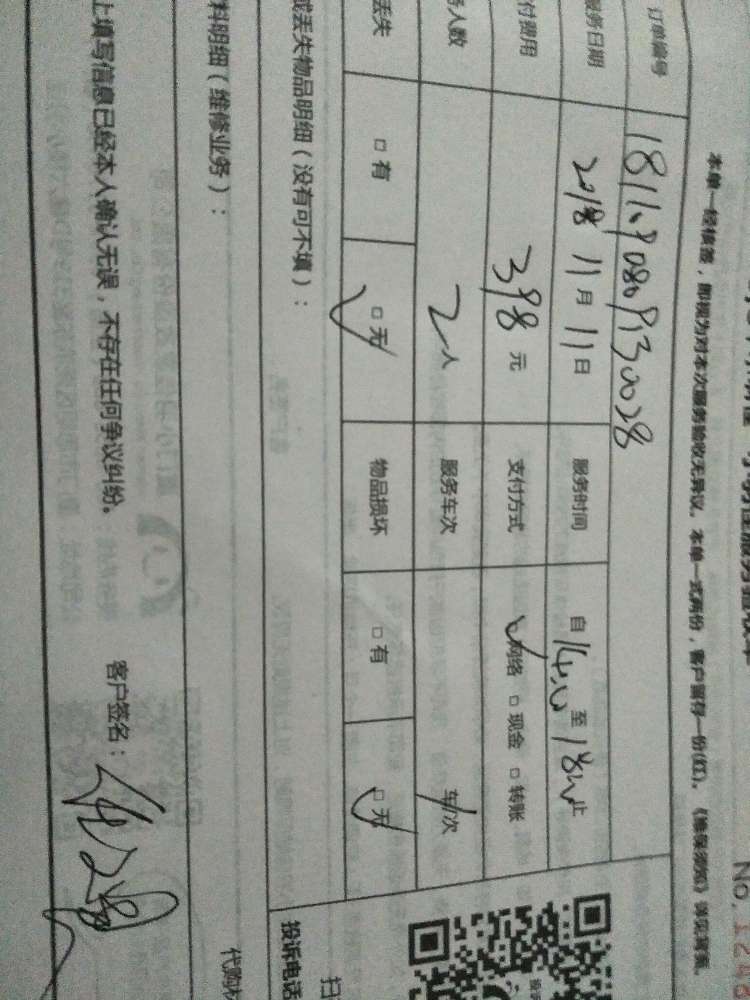 本单一经核签，即视为对本次服务验收无异议。本单一式两份，客户留存一份(红)。《维保须知》详见背面。
No.
订单编号 1811090809130028
服务日期 2018年11月11日 服务时间 自14:00至18:00止
付费用 398元 支付方式 ☑网络 □现金 □转账
务人数 2人 服务车次 车/次
丢失 □有 □无 物品损坏 □有 □无
或丢失物品明细（没有可不填）：
投诉电话
料明细（维修业务）：
代购材
上填写信息已经本人确认无误，不存在任何争议纠纷。
客户签名：